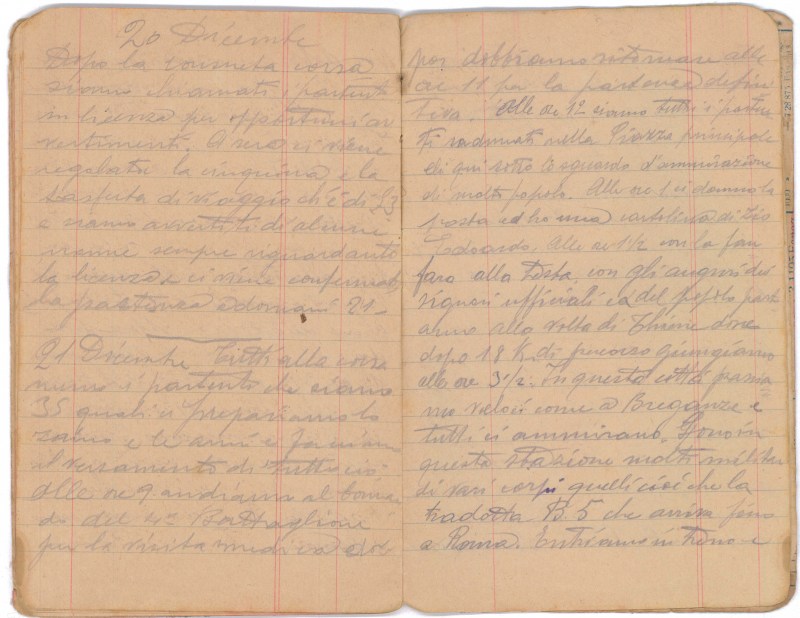 20 Dicembre
Dopo la consueta corsa
siamo chiamati i partenti
in licenza per opportuni av
vertimenti. A sera ci viene
regolata la cinquina e la
trasferta di viaggio ch'è di £3
e siamo avvertiti di alcune
sempre riguardanti
la licenza e ci viene confermata
la partenza a domani 21 -
21 Dicembre Tutti alla corsa
meno i partenti che siamo
35 quali ci prepariamo lo
zaino e le armi e facciamo
il versamento di tutto ciò
Alle ore 9 andiamo al coman
do del 4° Battaglione
per la visita medica e di
poi dobbiamo ritornare alle
ore 11 per la partenza defini
tiva. Alle ore 12 siamo tutti i parten
ti radunati nella Piazza principale
di qui sotto lo sguardo d'ammirazione
di molto popolo. Alle ore 1 ci danno la
posta ed ho una cartolina di Zio
Edoardo. Alle ore 1 1/2 con la fan
fara alla testa, con gli auguri dei
signori ufficiali e del popolo parti
amo alla volta di Thiene dove
dopo 18 K. di percorso giungiamo
alle ore 3 1/2. In questa città passia=
mo veloci come a Breganze e
tutti ci ammirano. Sono in
questa stazione molti militari
di vari corpi quelli cioè che la
tradotta B. 5 che arriva fino
a Roma. Entriamo in treno e